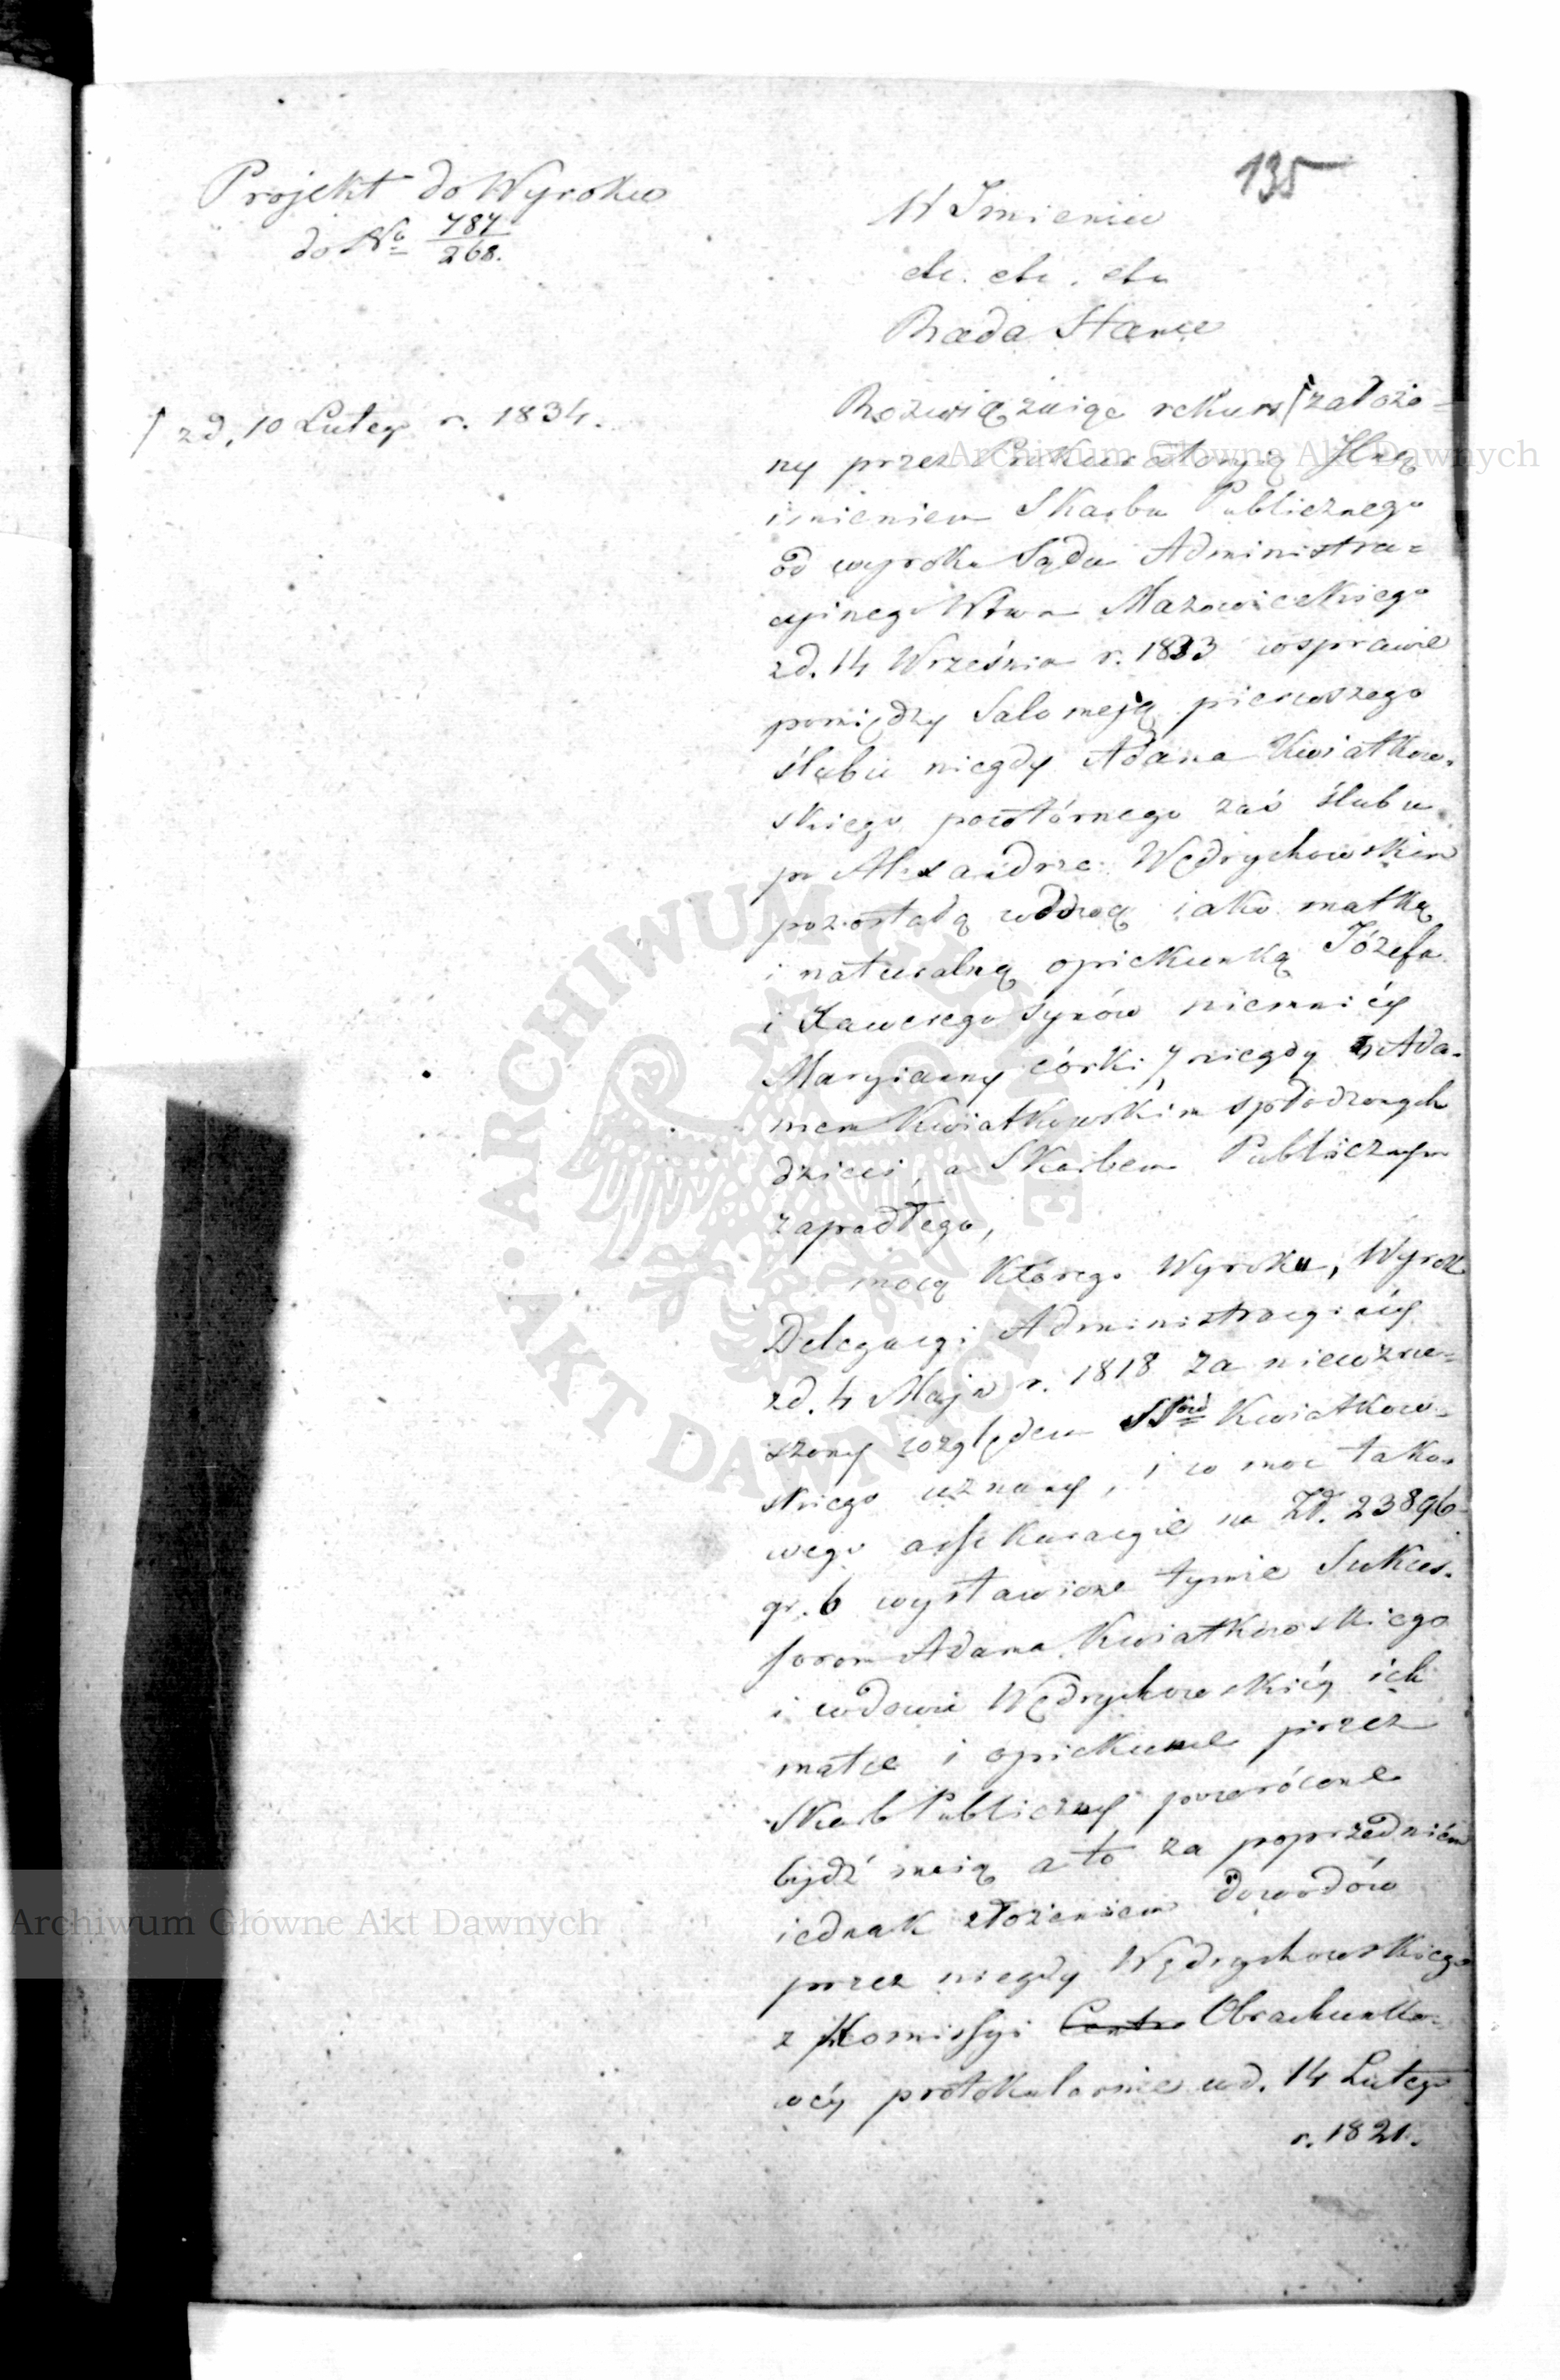 135
Projekt do Wyroku
do No 787/268.
W Imieniu
etc. etc. etc
Rada Stanu
ſ zd. 10 Lutego r. 1834.
Rozwiązuiąc rekurs ſ założo-
ny przez Prokuratoryą Jlną
imieniem Skarbu Publicznego
od wyroku Sądu Administra=
cyinego Wtwa Mazowieckiego
zd. 14 Września r. 1833 w sprawie
pomiędzy Salomeją pierwszego
ślubu niegdy Adama Kwiatkow-
skiego powtórnego zaś ślubu
po Alexandrze Wędrychowskim
pozostałą wdową iako matką
i naturalną opiekunką Józefa
i Xawerego synów niemniéy
Maryianny córki, z niegdy Ada-
mem Kwiatkowskim spłodzonych
dzieci, a Skarbem Publicznym
zapadłego,
mocą którego Wyroku, Wyrok
Delegacyi Administracyinéy
zd. 4 Maja r. 1818 za niewzru=
szony względem SSrów Kwiatkow-
skiego uznany, i w moc tako-
wego assekuracyie na Zł. 23896
gr. 6 wystawione tymże Sukces-
sorom Adama Kwiatkowskiego
i wdowie Wędrychowskiéy ich
matce i opiekunce przez
Skarb Publiczny powrócone
bydź maią a to za poprzedniém
iednak złożeniem dowodów
przez niegdy Wędrychowskiego
z Kommissyi Centr Obrachunko-
wéy protokularnie w d. 14 Lutego
r. 1821.
Archiwum Główne Akt Dawnych
Archiwum Główne Akt Dawnych
ARCHIWUM GŁÓWNE AKT DAWNYCH